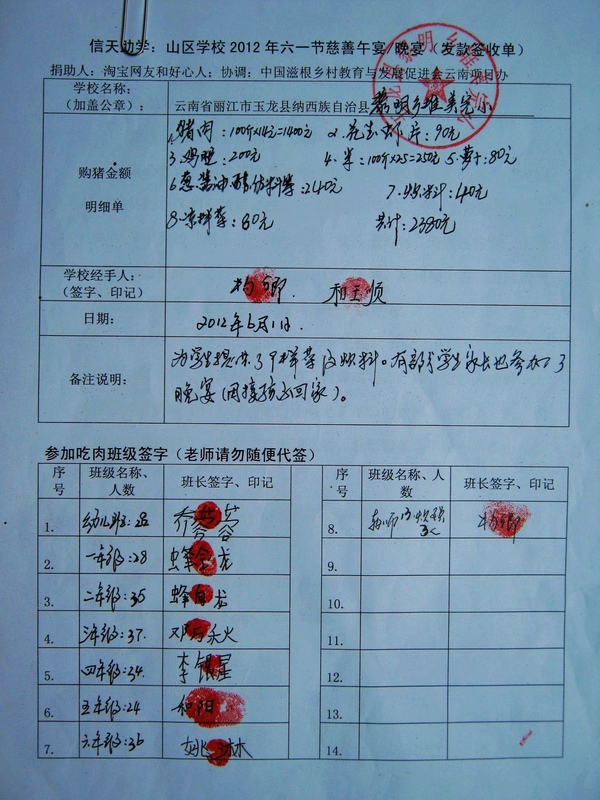 信天助学：山区学校 2012 年六一节慈善午宴/晚宴（发款签收单）
捐助人：淘宝网友和好心人；协调：中国滋根乡村教育与发展促进会云南项目办
学校名称：
（加盖公章）：
云南省丽江市玉龙县纳西族自治县黎明乡堆美完小
购猪金额
明细单
1.猪肉：100斤×14元=1400元 2.花生虾片：90元
3. 200元 4.米：100斤×2.5=250元 5.萝卜：80元
6.葱姜油醋佐料等：240元 7.饮料：40元
8.凉拌菜：80元 共计：2380元
学校经手人：
（签字、印记）
杨卿. 和王顺
日期：
2012年6月1日.
备注说明：
为学生提供了个样菜及饮料。有部分学生家长也参加了
晚宴（因接孩子回家）。
参加吃肉班级签字（老师请勿随便代签）
序号 班级名称、人数 班长签字、印记 序号 班级名称、人数 班长签字、印记
1. 幼儿班: 乔
8. 教师 3人 杨卿
2. 一年级:28 蜂金龙
9.
3. 二年级:35 蜂自龙
10.
4. 三年级:37. 邓 火
11.
5. 四年级:24. 李银星
12.
6. 五年级:24 和阳
13.
7. 六年级:36 姚 林
14.